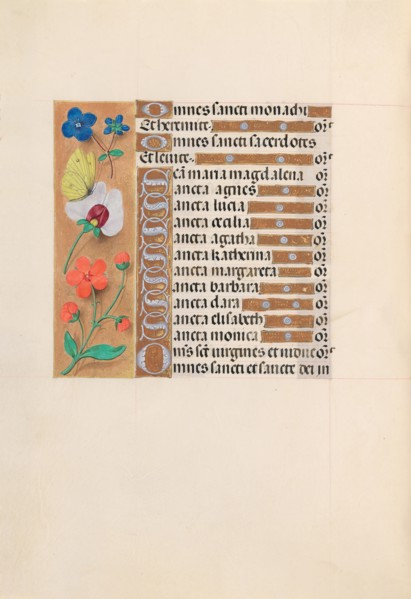 Omnes sancti monachi
Et heremite. or̃
Omnes sancti sacerdotes
Et levite. or̃
Sc̃a maria magdalena or̃
Sancta agnes or̃
Sancta lucia or̃
Sancta cecilia or̃
Sancta agatha or̃
Sancta katherina or̃
Sancta margareta or̃
Sancta barbara or̃
Sancta clara or̃
Sancta elisabeth or̃
Sancta monica or̃
Om̃s scẽ virgines et vidue or̃
Omnes sancti et sancte dei in